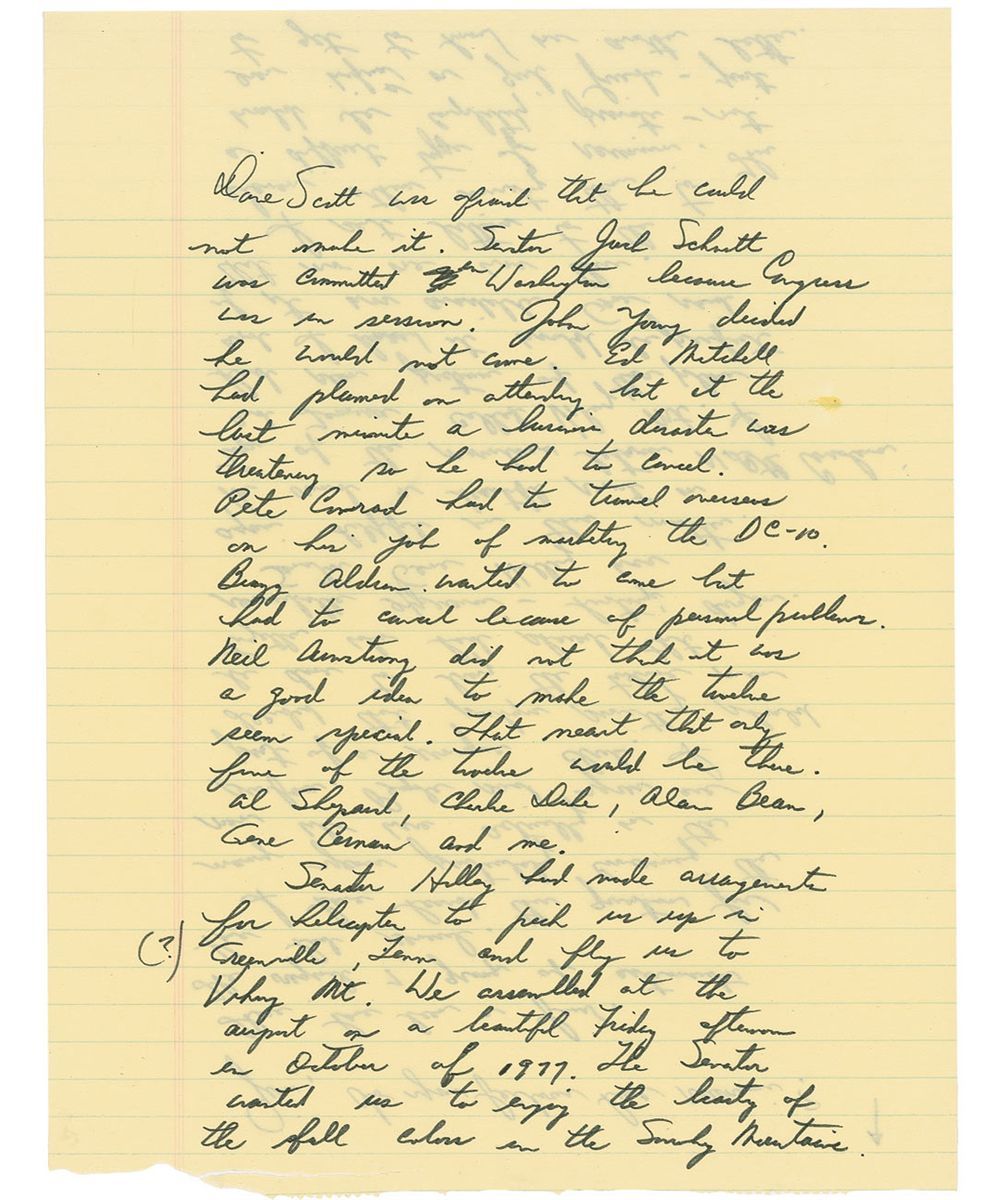 Dave Scott was afraid that he could
not make it. Senator Jack Schmitt
was committed in Washington because Congress
was in session. John Young decided
he would not come. Ed Mitchell
had planned on attending but at the
last minute a business disaster was
threatening so he had to cancel.
Pete Conrad had to travel overseas
on his job of marketing the DC-10.
Buzz Aldrin wanted to come but
had to cancel because of personal problems.
Neil Armstrong did not think it was
a good idea to make the twelve
seem special. That meant that only
five of the twelve would be there.
Al Shepard, Charlie Duke, Alan Bean,
Gene Cernan and me.
Senator Hilley had made arrangements
for helicopter to pick us up in
(?) Greenville, Tenn and fly us to
Mt. We assembled at the
airport on a beautiful Friday afternoon
in October of 1977. The Senator
wanted us to enjoy the beauty of
the fall colors in the Smoky Mountains.